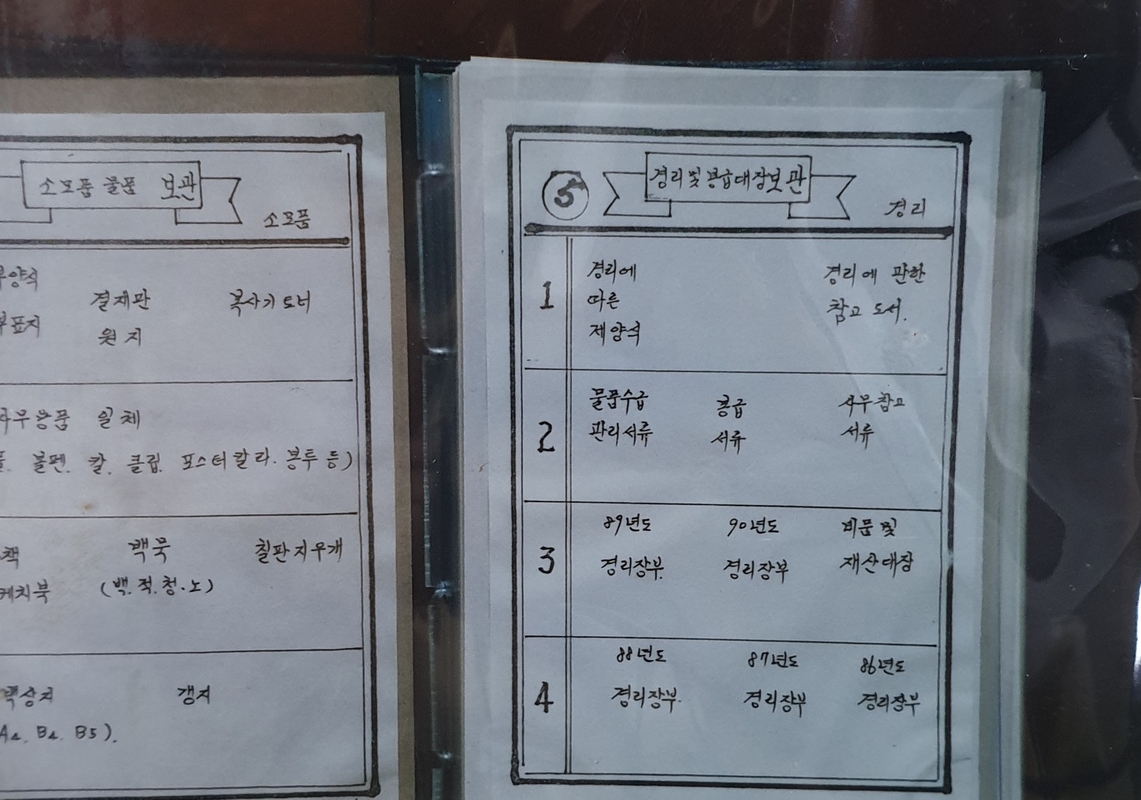 소모품 물품 보관
소모품
결재판 복사기 토너
원지
사무용품 일체
볼펜. 칼. 클립. 포스터칼라. 봉투 등)
백묵 칠판지우개
(백.적.청.노)
갱지
A4. B4. B5).
5 경리 및 봉급대장보관
경리
1
경리에
따른
제양식
경리에 관한
참고 도서.
2
물품수급
관리서류
봉급
서류
사무참고
서류
3
89년도
경리장부.
90년도
경리장부
비품 및
재산대장
4
88년도
경리장부.
87년도
경리장부
86년도
경리장부